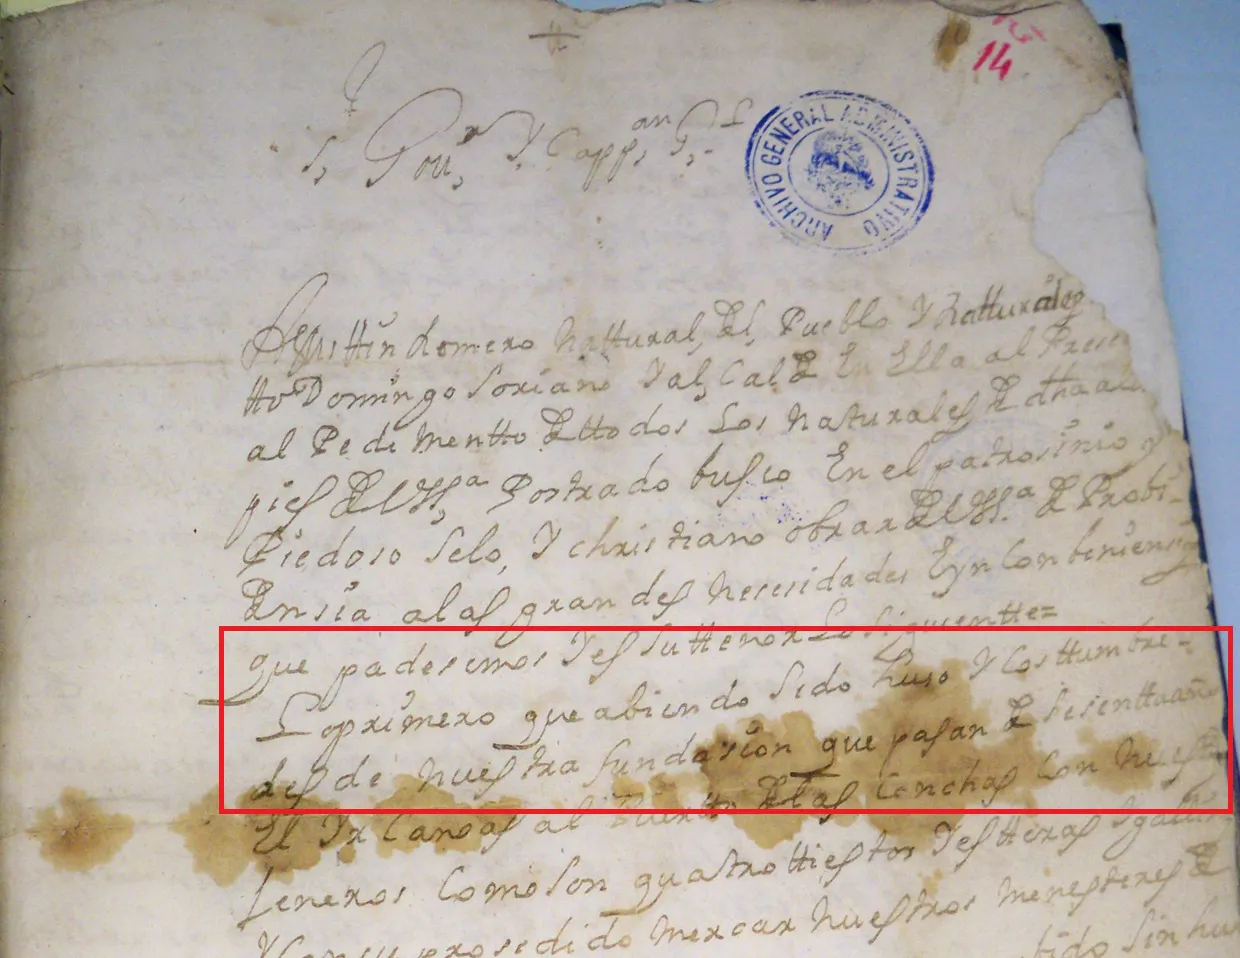 14
S, Gou,r Y Capp,an G,l
ARCHIVO GENERAL ADMINISTRATIVO
Agusttin Romero Nattural, del, Pueblo Y Natturales
tto Domingo Soriano Y al, Calde En Ella al Prese
al Pedimentto de ttodos Los Naturales de dha
pies de VSs,a Postrado busco En el patrosinio y
Piedoso Selo, Y christiano obrar de VSs.a de Probi-
densia a las grandes Nesesidades Eyn Conbeniensias
que padesemos Y es Su ttenor Lo Siguientte=
Lo primero que abiendo Sido huso Y Costtumbre-
desde nuestra fundasion que pasan de Sesentta año
El Yr Canoas al Puerto de las Conchas Con Nuest
Generos Como Son quattro ttiestos Y estteras
Y Con Su prosedido mercar nuestros menesteres de
bido Sin hu